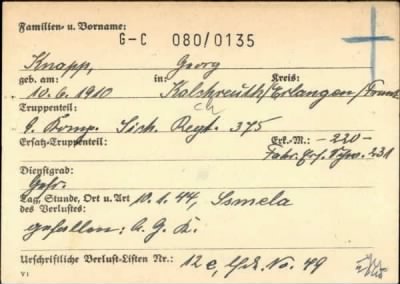 Familien- u. Vorname:
G-C 080/0135
Knapp, Georg
geb. am: in: Kreis:
10.6.1910 Kalchreuth/Erlangen/
ch
Truppenteil:
9. Komp. Sich. Regt. 375
Ersatz-Truppenteil: Erk.-M.: -220-
231
Dienstgrad:
Gefr.
Tag, Stunde, Ort u. Art 10.1.44, Ssmela
des Verlustes:
gefallen: A. G. K.
Urschriftliche Verlust-Listen Nr.: 12e, lfd. No. 49
V1